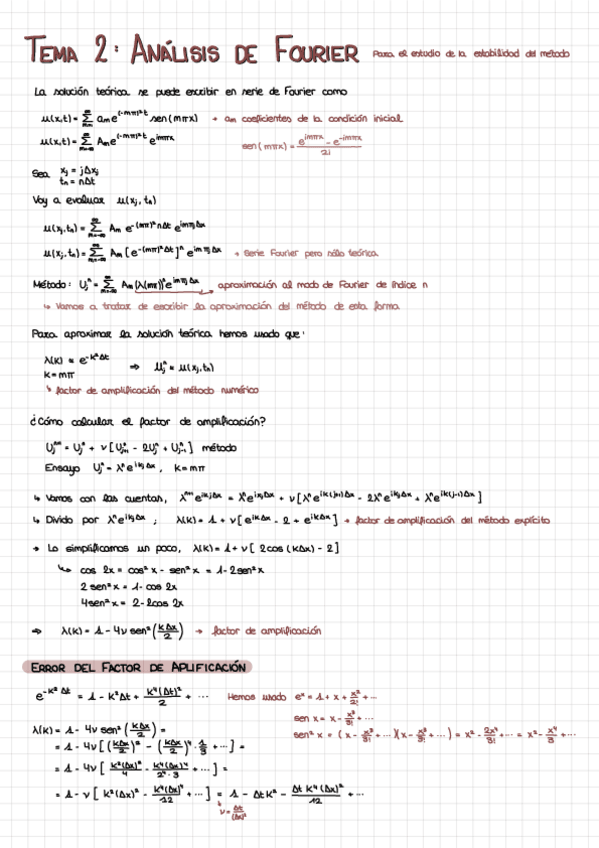 TEMA 2: ANÁLISIS DE FOURIER Para el estudio de la estabilidad del método
La solución teórica se puede escribir en serie de Fourier como
u(x,t) = ∑_{m=1}^{∞} a_m e^{(-mπ)²t} sen(mπx) → a_m coeficientes de la condición inicial
u(x,t) = ∑_{m=-∞}^{∞} A_m e^{(-mπ)²t} e^{imπx} sen(mπx) = (e^{imπx} - e^{-imπx})/2i
Sea x_j = jΔx_j
t_n = nΔt
Voy a evaluar u(x_j, t_n)
u(x_j,t_n) = ∑_{m=-∞}^{∞} A_m e^{-(mπ)²nΔt} e^{imπjΔx}
u(x_j,t_n) = ∑_{m=-∞}^{∞} A_m [e^{-(mπ)²Δt}]^n e^{imπjΔx} → Serie Fourier pero sólo teórica
Método: U_j^n = ∑_{m=-∞}^{∞} A_m (λ(mπ))^n e^{imπjΔx} aproximación al modo de Fourier de índice n
↳ Vamos a tratar de escribir la aproximación del método de esta forma
Para aproximar la solución teórica hemos usado que:
λ(k) ≈ e^{-k²Δt}
k = mπ ⇒ U_j^n ≈ u(x_j, t_n)
↳ factor de amplificación del método numérico
¿Cómo calcular el factor de amplificación?
U_j^{n+1} = U_j^n + ν[U_{j+1}^n - 2U_j^n + U_{j-1}^n] método
Ensayo U_j^n = λ^n e^{ikjΔx}, k = mπ
↳ Vamos con las cuentas, λ^{n+1} e^{ikjΔx} = λ^n e^{ikjΔx} + ν[λ^n e^{ik(j+1)Δx} - 2λ^n e^{ikjΔx} + λ^n e^{ik(j-1)Δx}]
↳ Divido por λ^n e^{ikjΔx}; λ(k) = 1 + ν[e^{ikΔx} - 2 + e^{ikΔx}] → factor de amplificación del método explícito
→ Lo simplificamos un poco, λ(k) = 1 + ν[2cos(kΔx) - 2]
↳ cos 2x = cos² x - sen² x = 1 - 2sen² x
2 sen² x = 1 - cos 2x
4 sen² x = 2 - 2cos 2x
⇒ λ(k) = 1 - 4ν sen²(kΔx/2) → factor de amplificación
ERROR DEL FACTOR DE APLIFICACIÓN
e^{-k²Δt} = 1 - k²Δt + k⁴(Δt)²/2 + ... Hemos usado e^x = 1 + x + x²/2! + ...
sen x = x - x³/3! + ...
λ(k) = 1 - 4ν sen²(kΔx/2) = sen² x = (x - x³/3! + ...)(x - x³/3! + ...) = x² - 2x⁴/3! + ... = x² - x⁴/3 + ...
= 1 - 4ν[(kΔx/2)² - (kΔx/2)⁴ · 1/3 + ...] =
= 1 - 4ν[k²(Δx)²/4 - k⁴(Δx)⁴/(2⁴·3) + ...] =
= 1 - ν[k²(Δx)² - k⁴(Δx)⁴/12 + ...] = 1 - Δtk² - Δt k⁴(Δx)²/12 + ...
ν = Δt/(Δx)²